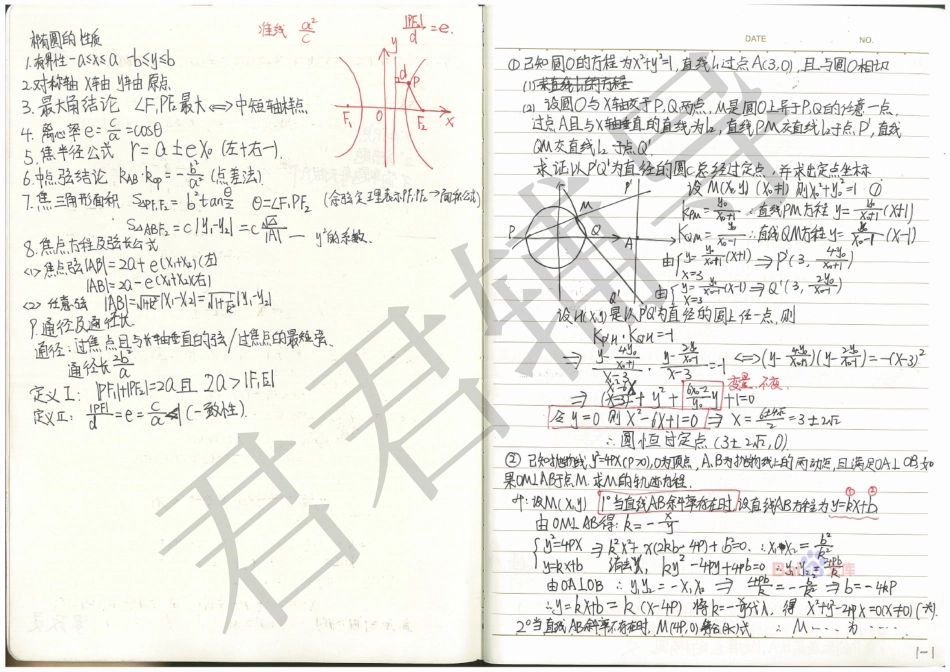 椭圆的性质
1.有界性 -a≤x≤a -b≤y≤b
2.对称轴 x轴 y轴 原点
3.最大角结论 ∠F₁PF₂最大⇔P中短轴端点
4.离心率 e=c/a=cosθ
5.焦半径公式 r=a±ex₀ (左+右-).
6.中点弦结论 k_AB·k_OP=-b²/a² (点差法)
7.焦三角形面积 S△PF₁F₂=b²tanθ/2 θ=∠F₁PF₂
S△ABF₂=c|y₁-y₂|=c√Δ/|A|—y²的系数.
8.焦点方程及弦长公式
<1>焦点弦|AB|=2a+e(x₁+x₂)(左)
|AB|=2a-e(x₁+x₂)(右)
<2>任意弦 |AB|=√(1+k²)|x₁-x₂|=√(1+1/k²)|y₁-y₂|
9.通径及通径长
通径:过焦点且与长轴垂直的弦/过焦点的最短弦.
通径长2b²/a
定义Ⅰ: |PF₁|+|PF₂|=2a且 2a>|F₁F₂|
定义Ⅱ: |PF|/d=e=c/a<1 (一致性).
准线 a²/c
|PF₂|/d=e.
y
d
P
F₁ O F₂ x
DATE NO.
①已知圆O的方程为x²+y²=1,直线l₁过点A(3,0),且与圆O相切
(1)求直线l₁的方程
(2) 设圆O与x轴交于P.Q两点,M是圆O上异于P.Q的任意一点.
过点A且与x轴垂直的直线为l₂,直线PM交直线l₂于点P',直线
QM交直线l₂于点Q'
求证以P'Q'为直径的圆C总经过定点,并求出定点坐标
P M Q A P' Q'
设M(x₀,y₀) (x₀≠±1) 则x₀²+y₀²=1 ①
k_PM=y₀/(x₀+1) ∴直线PM方程 y=y₀/(x₀+1)(x+1)
k_QM=y₀/(x₀-1) ∴直线QM方程 y=y₀/(x₀-1)(x-1)
由{y=y₀/(x₀+1)(x+1) x=3 ⇒P'(3,4y₀/(x₀+1))
由{y=y₀/(x₀-1)(x-1) x=3 ⇒Q'(3,2y₀/(x₀-1))
设H(x,y)是以P'Q'为直径的圆上任一点,则
k_P'H·k_Q'H=-1
⇒ (y-4y₀/(x₀+1))/(x-3)·(y-2y₀/(x₀-1))/(x-3)=-1 ⇔(y-4y₀/(x₀+1))(y-2y₀/(x₀-1))=-(x-3)²
变量 不变
⇒ (x-3)²+y²+(6x₀-2)/y₀ y+1=0
令y=0 则x²-6x+1=0 ⇒ x=(6±4√2)/2=3±2√2
∴圆恒过定点(3±2√2,0)
②已知抛物线y²=4px(p>0),O为顶点,A、B为抛物线上的两动点,且满足OA⊥OB.如
果OM⊥AB于点M.求M的轨迹方程.
设M(x,y) 1°当直线AB斜率存在时 设直线AB方程为y=kx+b
① ②
由OM⊥AB得:k=-x/y
{y²=4px y=kx+b ⇒k²x²+x(2kb-4p)+b²=0. ∴x₁x₂=b²/k²
消去x, ky²-4py+4pb=0 ∴y₁y₂=4pb/k
由OA⊥OB ∴y₁y₂=-x₁x₂ ⇒ 4pb/k=-b²/k² ⇒b=-4kp
∴y=kx+b=k(x-4p) 将k=-x/y代入,得 x²+y²-4px=0(x≠0) (*).
2°当直线AB斜率不存在时, M(4p,0)符合(*)式 ∴M……为……
1-1
君君辅导